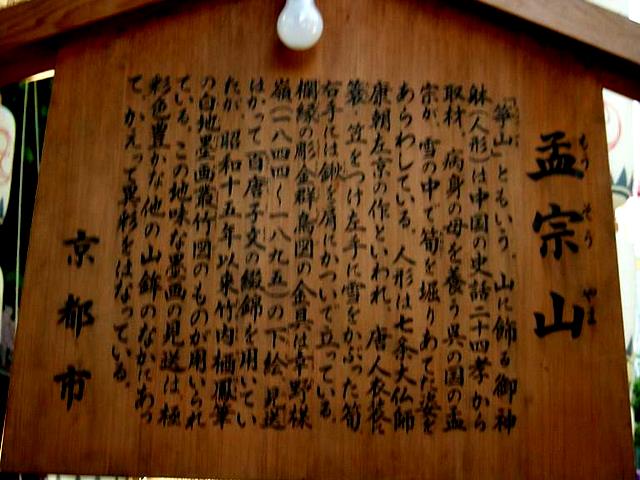 孟宗山
もうそうやま
「筍山」ともいう。山に飾る御神
躰(人形)は中国の史話二十四孝から
取材、病身の母を養う呉の国の孟
宗が、雪の中で筍を堀りあてた姿を
あらわしている。人形は七条大仏師
康朝左京の作といわれ、唐人衣裳に
簑、笠をつけ左手に雪をかぶった筍、
右手には鍬を肩にかついで立っている。
欄縁の彫金群鳥図の金具は幸野楳
嶺(一八四四〜一八九五)の下絵、見送
はかって百唐子文の綴錦を用いてい
たが、昭和十五年以来竹内栖鳳筆
の白地墨画叢竹図のものが用いられ
ている。この地味な墨画の見送は、極
彩色豊かな他の山鉾のなかにあっ
て、かえって異彩をはなっている。
京都市